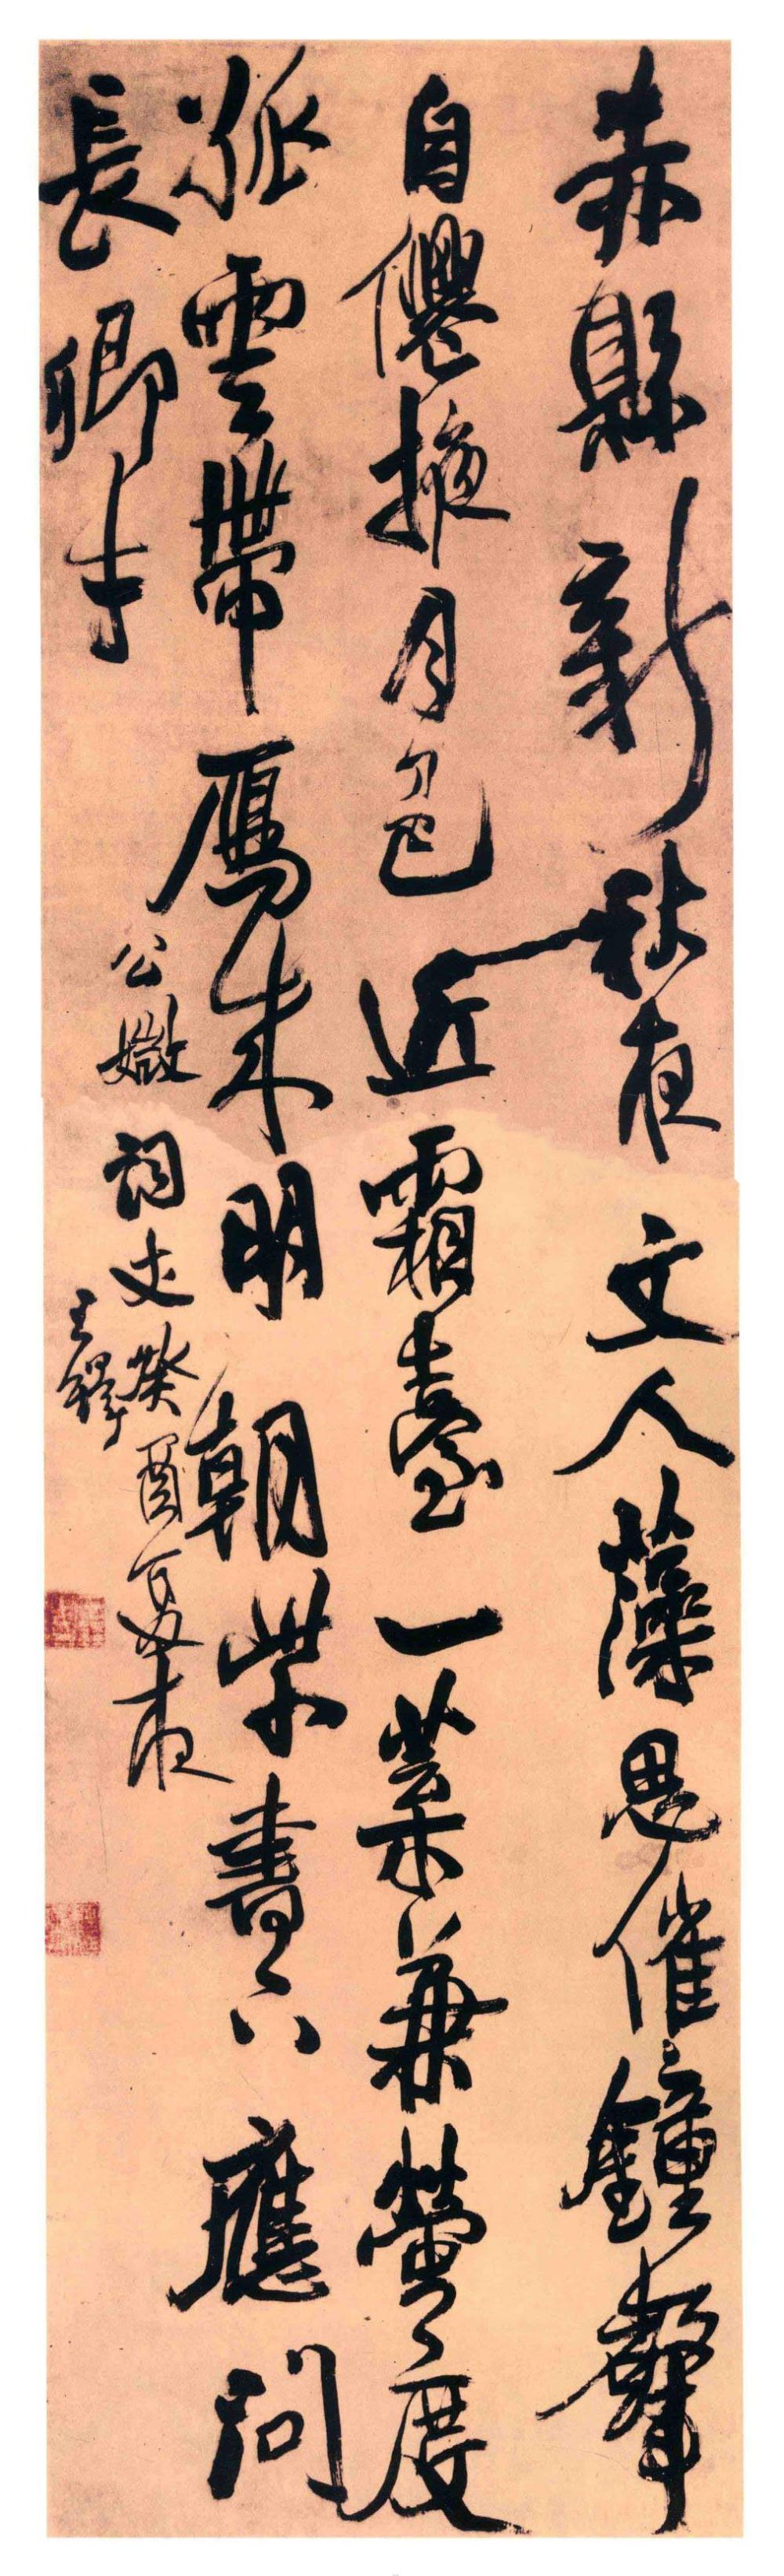 赤縣新秋夜文人藻思催鐘聲
自僊掖月色近霜臺一葉兼螢度
孤雲帶鴈來明朝紫書下應問
長卿才
公媺詞丈癸酉夏夜
王鐸